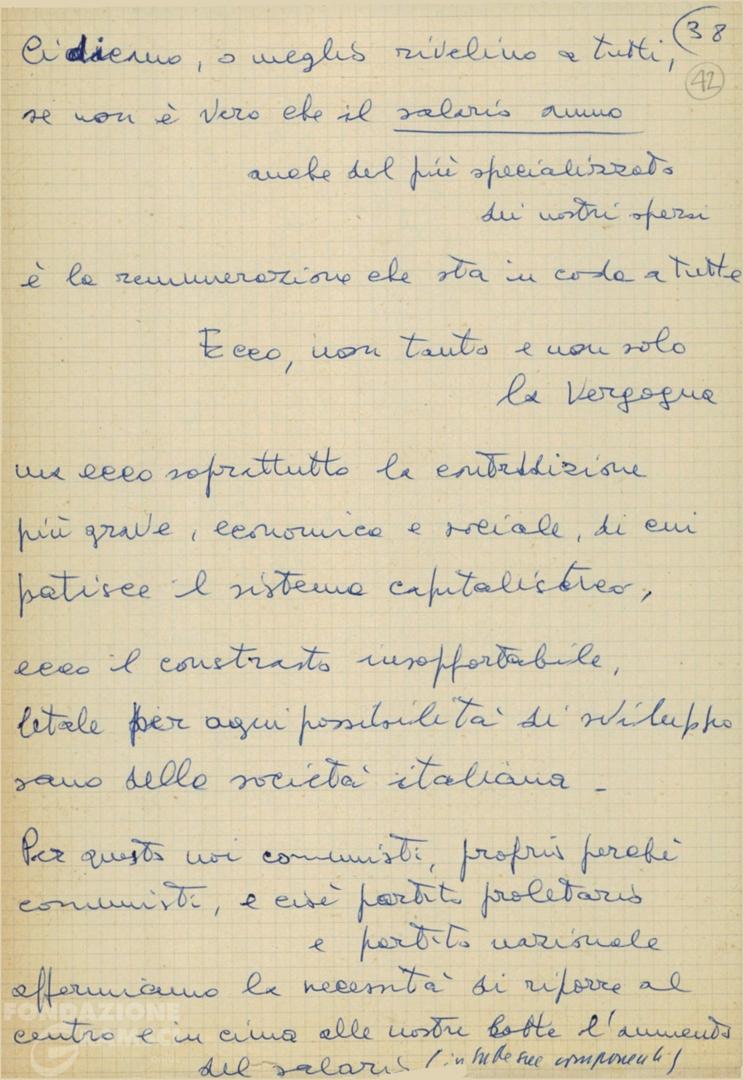 38
42
Ci dicano, o meglio rivelino a tutti,
se non è vero che il salario annuo
anche del più specializzato
dei nostri operai
è la remunerazione che sta in coda a tutte
Ecco, non tanto e non solo
la Vergogna
ma ecco soprattutto la contraddizione
più grave, economica e sociale, di cui
patisce il sistema capitalistico,
ecco il constrasto insopportabile,
letale per ogni possibilità di sviluppo
sano della società italiana -
Per questo noi comunisti, proprio perché
comunisti, e cioè partito proletario
e partito nazionale
affermiamo la necessità di riporre al
centro e in cima alle nostre lotte l'aumento
del salario (in tutte sue componenti)
FONDAZIONE
GRAMSCI